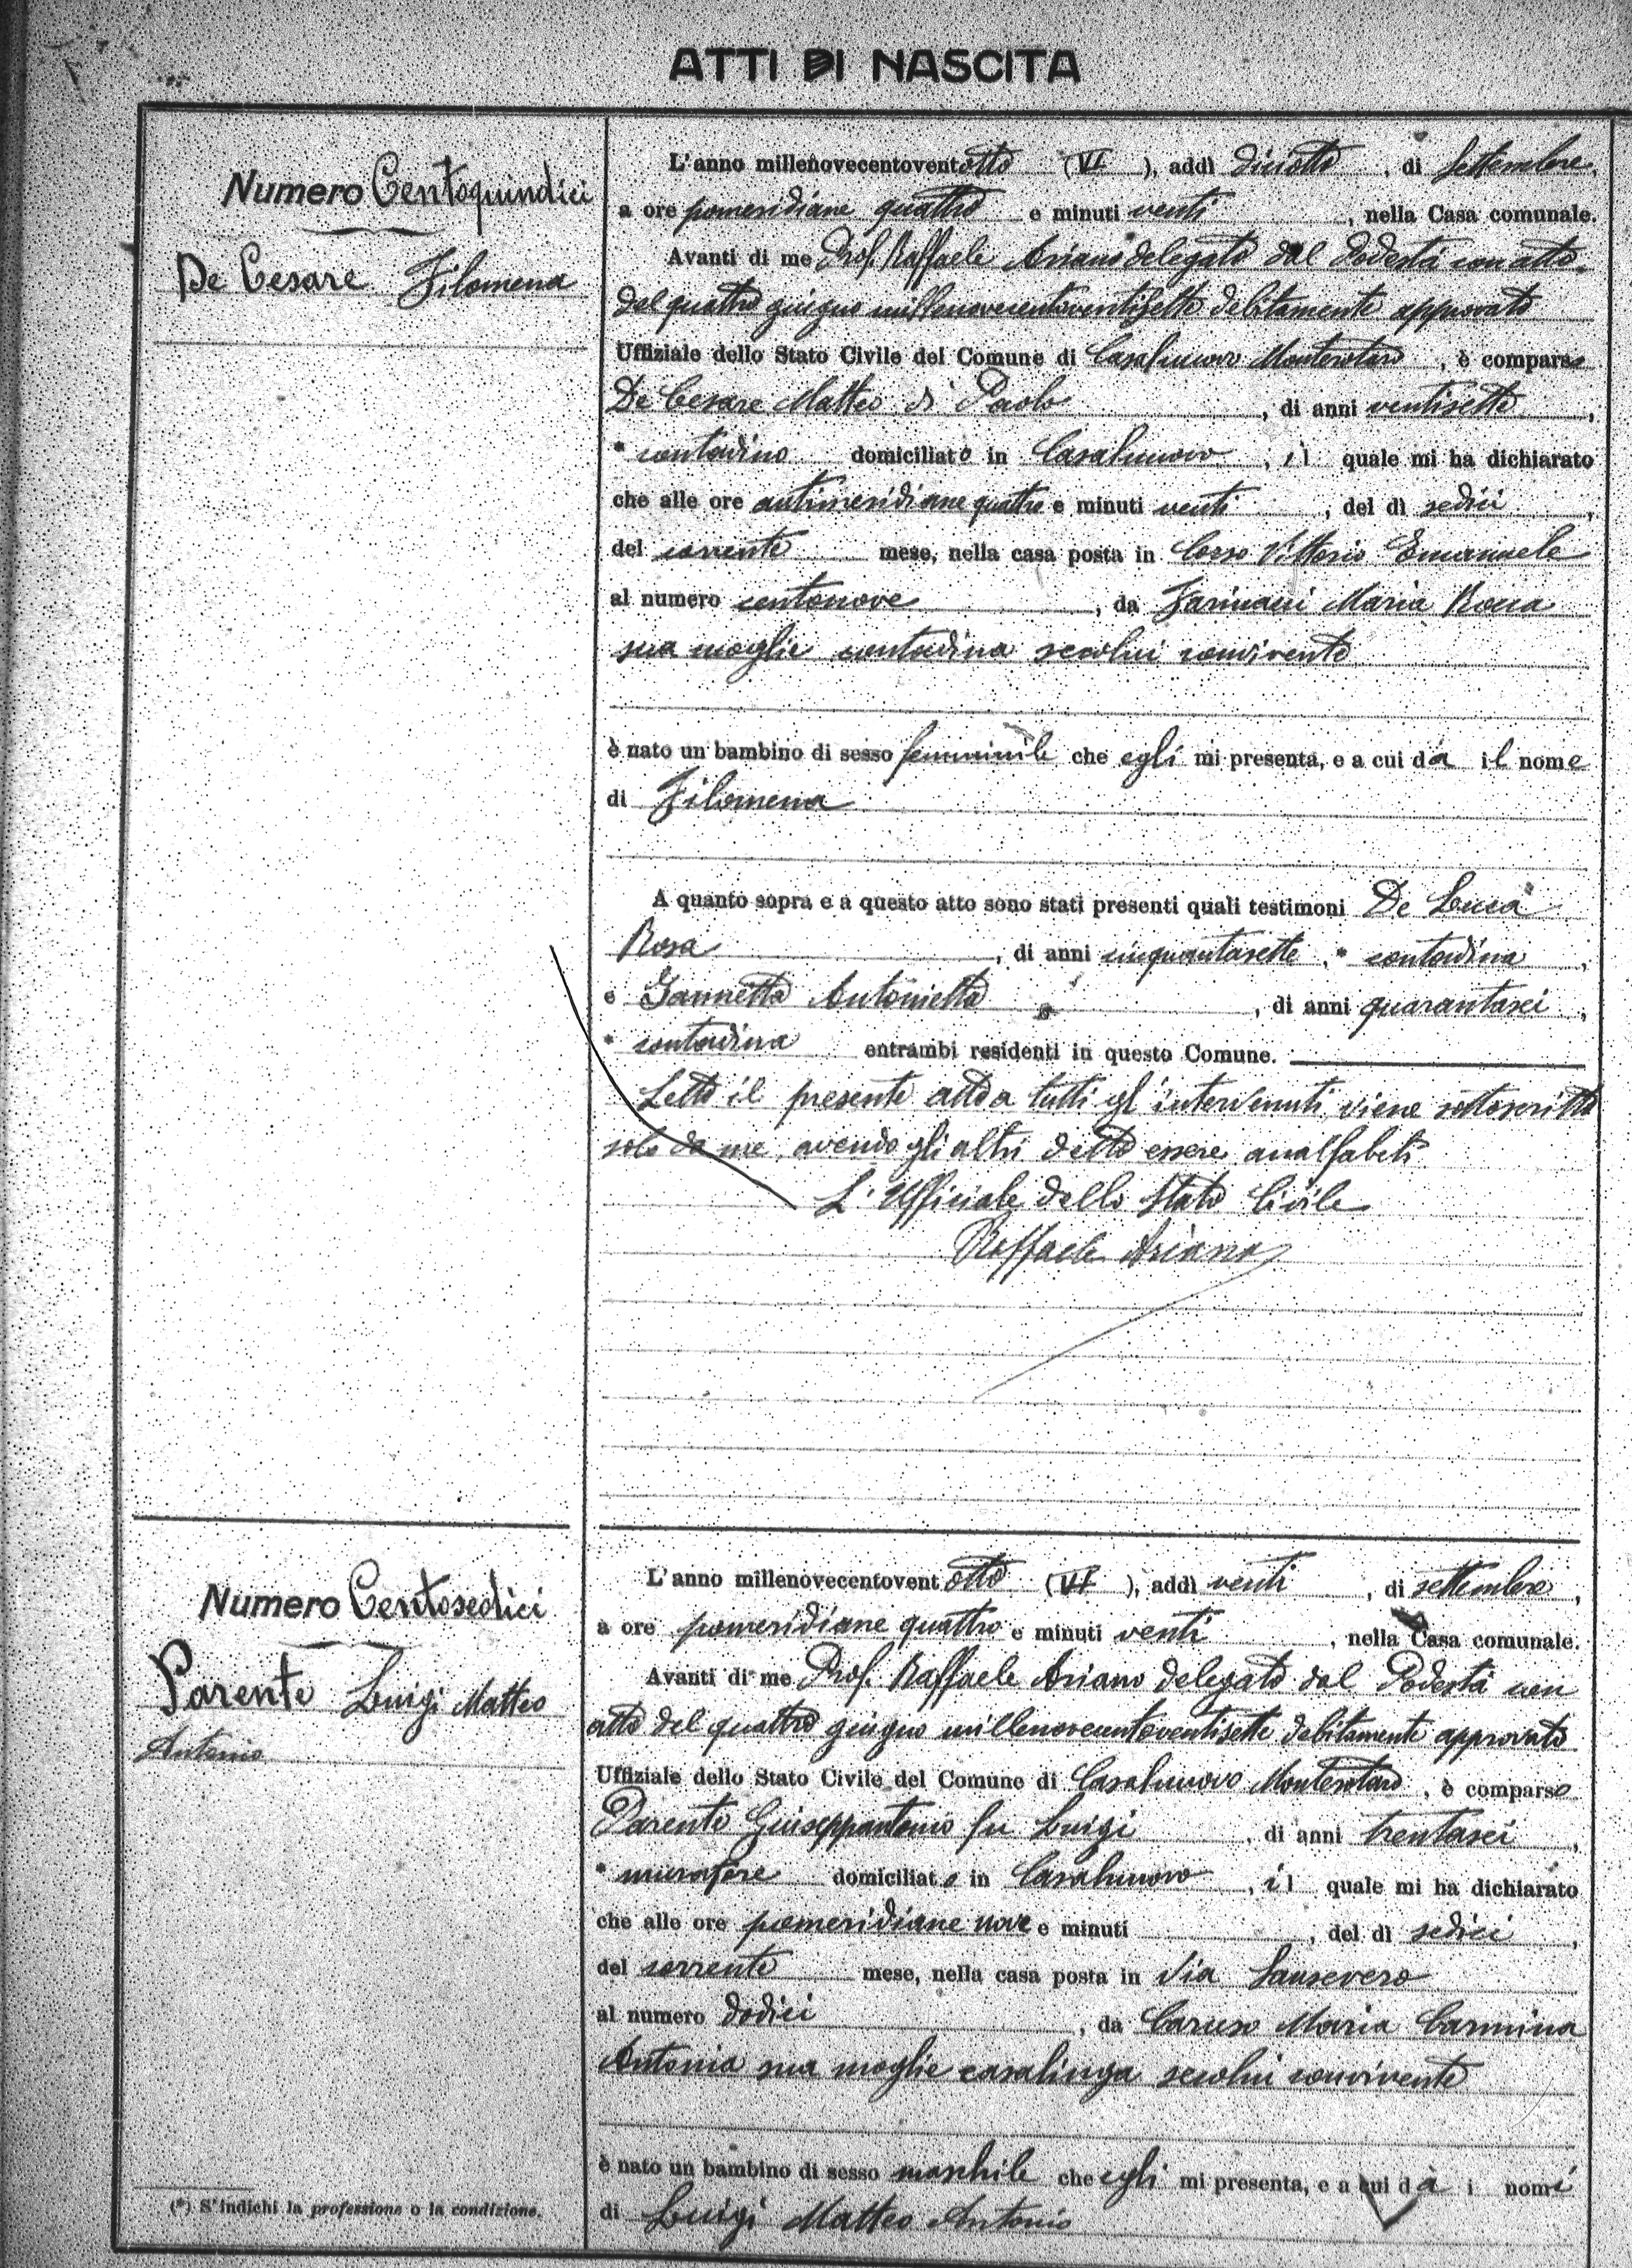 ATTI DI NASCITA
Numero Centoquindici
De Cesare Filomena
L'anno millenovecentoventotto (VI), addì diciotto, di Settembre,
a ore pomeridiane quattro e minuti venti, nella Casa comunale.
Avanti di me Prof. Raffaele Ariano delegato dal Podestà con atto
del quattro giugno millenovecentoventisette debitamente approvato
Uffiziale dello Stato Civile del Comune di Casalnuovo Monterotaro, è comparso
De Cesare Matteo di Paolo, di anni ventisette,
* contadino domiciliato in Casalnuovo, il quale mi ha dichiarato
che alle ore antimeridiane quattro e minuti venti, del dì sedici,
del corrente mese, nella casa posta in Corso Vittorio Emanuele
al numero centonove, da Farinacci Maria Rocca
sua moglie contadina secolui convivente
è nato un bambino di sesso femminile che egli mi presenta, e a cui dà il nome
di Filomena
A quanto sopra e a questo atto sono stati presenti quali testimoni De Luca
Rosa, di anni cinquantasette, * contadina,
e Iannetta Antonietta, di anni quarantasei,
* contadina entrambi residenti in questo Comune.
Letto il presente atto a tutti gl'intervenuti, viene sottoscritto
solo da me, avendo gli altri detto essere analfabeti
L'Ufficiale dello Stato Civile
Raffaele Ariano
Numero Centosedici
Parente Luigi Matteo
Antonio
L'anno millenovecentoventotto (VI), addì venti, di settembre,
a ore pomeridiane quattro e minuti venti, nella Casa comunale.
Avanti di me Prof. Raffaele Ariano delegato dal Podestà con
atto del quattro giugno millenovecentoventisette debitamente approvato
Uffiziale dello Stato Civile del Comune di Casalnuovo Monterotaro, è comparso
Parente Giuseppantonio fu Luigi, di anni trentasei,
* muratore domiciliato in Casalnuovo, il quale mi ha dichiarato
che alle ore pomeridiane nove e minuti, del dì sedici,
del corrente mese, nella casa posta in Via Sansevero
al numero dodici, da Caruso Maria Carmina
Antonia sua moglie casalinga secolui convivente
è nato un bambino di sesso maschile che egli mi presenta, e a cui dà i nomi
di Luigi Matteo Antonio
(*) S'indichi la professione o la condizione.